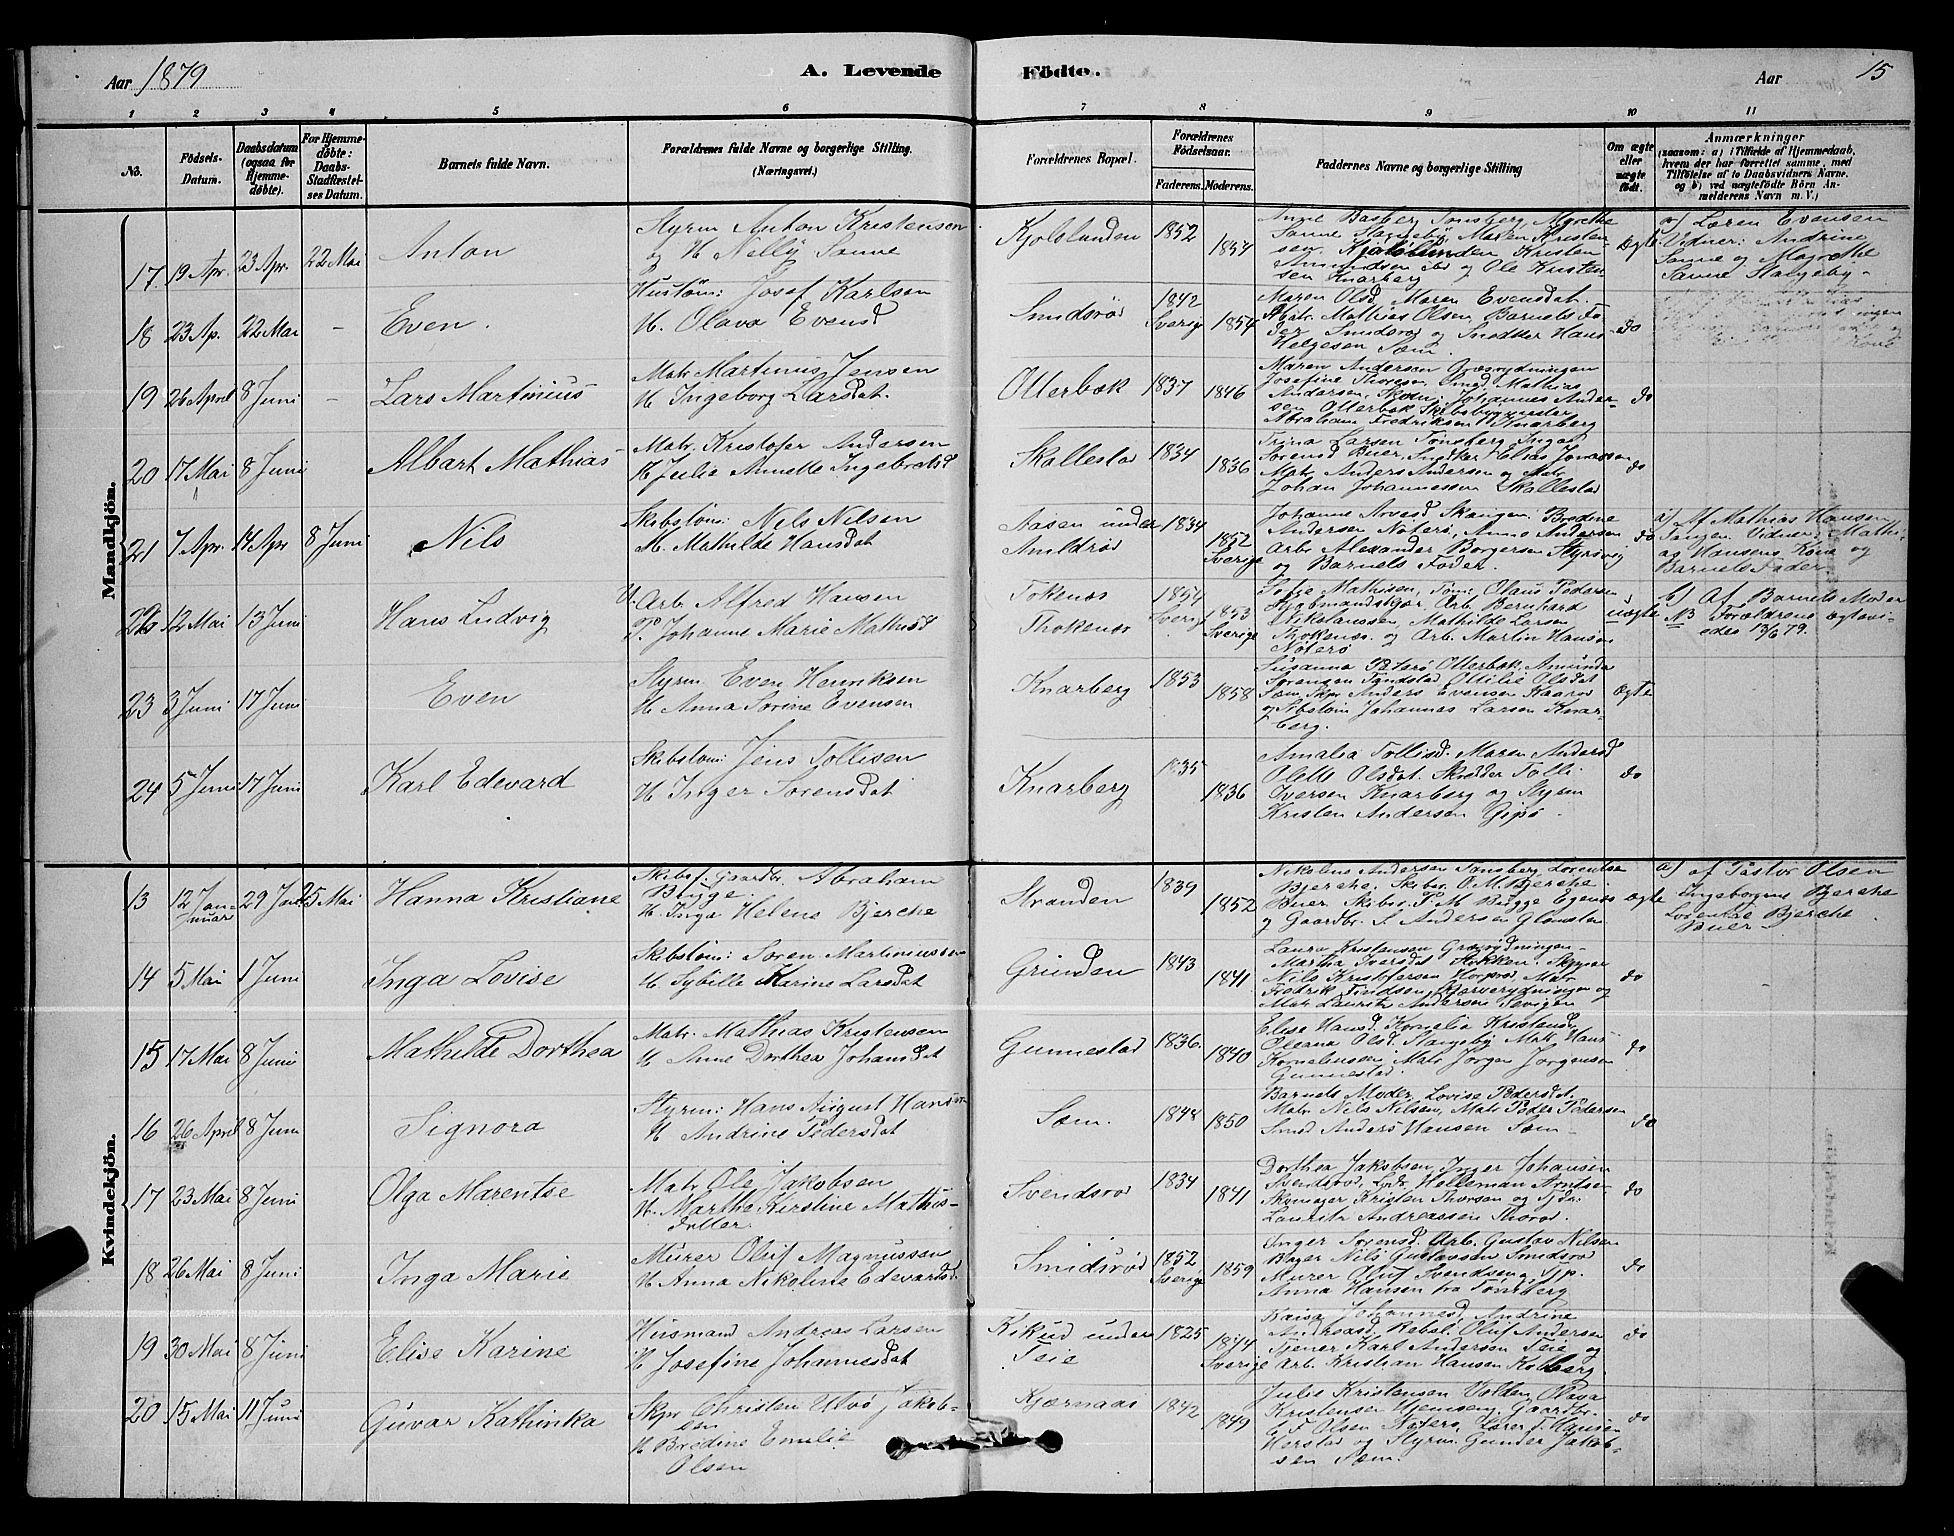 Aar 1879
A. Levende
Födte.
Aar
15
1 2 3 4 5 6 7 8 9 10 11
No.
Födsels-Datum.
Daabsdatum (ogsaa for Hjemme-döbte).
For Hjemme-döbte: Daabs-Stadfæstel-ses Datum.
Barnets fulde Navn.
Forældrenes fulde Navne og borgerlige Stilling. (Næringsvei.)
Forældrenes Bopæl.
Forældrenes Födselsaar.
Faderens. Moderens.
Faddernes Navne og borgerlige Stilling
Om ægte eller uægte födt.
Anmærkninger
(saasom: a) i Tilfælde af Hjemmedaab, hvem der har forrettet samme, med Tilföielse af to Daabsvidners Navne. og b) ved uægtefödte Börn An-melderens Navn m. V.)
Mandkjön.
17. 19 Apr. 23 Apr. 22 Mai Anton
Styrm Anton Kristensen
og H. Nelly Sanne
Kjolslunden 1852 1854
Basberg Tönsberg Mgrethe
Sanne Slagebÿ, Maren Kristen
sen. Kjolslunden Kristen
Amundsen ibd og Ole Kristen
sen Knarberg
Ægte
a) Loren Evensen
Vidner: Andrine
Sanne og Magrethe
Sanne Slageby-
18 23 Ap. 22 Mai - Even.
Hustöm: Josef Karlsen
H. Olava Evensd
Smidsrød 1842 Sverig 1854
Maren Olsd, Maren Evensdat.
Matr. Mathias Olsen, Barnets Fa
der Smidsrød og Snedker Hans
Helgesen Sæm.
do
19 26 April 8 Juni - Lars Martinius
Matr Martinius Jensen
H Ingeborg Larsdat.
Otterbæk 1837 1846
Maren Andersen Græsrydningen
Josefine Thoresen, Smed Mathias
Andersen, Skom: Johannes Ander-
sen Otterbæk Skibsbygmester
Abraham Fredriksen Knarberg
do
20 17 Mai 8 Juni Albart Mathias
Matr. Kristofer Andersen
H Julie Annette Ingebretsd
Skallestad 1834 1836
Trina Larsen Tönsberg Inga
Sorensd Buer, Snedker Helias Jonassen
Matr Anders Andersen og Matr
Johan Johannessen Skallestad
do
21 7 Apr. 14 Apr 8 Juni Nils
Skibstöm: Nels Nelsen
H. Mathilde Hansdat
Aasen under Amildrød 1834 1852 Sverige
Johanne Arvesd Skangen. Bredine
Andersen Noterø, Anna Andersen
Arb. Alexander Borgersen Styrsvig
og Barnets Fader.
do
a) Af Mathias Hansen
Tangen Vidner: Mathi
as Hansens Kone og
Barnets Fader
22 12 Mai 13 Juni Hans Ludvig
U. Arb. Alfred Hansen
P. Johanne Marie Mathisd
Tokenæs
Thokenæs 1854 Sverig 1853 Sverige
Sofie Mathisen, Töm: Olaus Pedersen
Kjobmandskjær, Arb Bernhard
Nikolaussen, Mathilde Larsen
Thokenæs. og Arb. Martin Hansen
Noterø
uægte
b) Af Barnets Moder
NB Forældrene ægtevi-
edes 13/6 79.
23 3 Juni 17 Juni Even
Styrm Even Henriksen
H Anna Sorine Evensen
Knarberg 1853 1858
Susanna Peterø Otterbæk. Amunda
Sorensen Tandstad Ottilie Olsdat
Sæm, Skpr Anders Evensen Kaarød
og Sbstöm Johannes Larsen Knar-
berg.
Ægte
24 5 Juni 17 Juni Karl Edevard
Skibstöm: Jens Tollisen
H Inger Sorensdat
Knarberg 1835 1836
Amalia Tollisd. Maren Andersd
Olette Olsdat. Skrædder Tolli
Iversen Knarberg og Styrm
Kristen Andersen Gipø.
do
Kvindekjön.
13 12 Januar 29 Jan. 25 Mai Hanna Kristiane
Skibsf. Gaardbr. Abraham
Bugge.
H. Inga Helene Bjerche
Stranden 1839 1852
Nikoline Andersen Tönsberg, Lorentse
Bjerche, Skibsr. O. M. Bjerche.
Buer Skibsr. T. M Bugge Egenæs
og Gaardbr. S Andersen Glomsten
Ægte
a) af Pastor Olsen
Ingeborgine Bjerche
Lorentse Bjerche
Buer
14 5 Mai 1 Juni Inga Lovise
Skibstöm: Soren Martiniussen
H. Sybille Karine Larsdat
Grinden 1843 1841
Laura Kristensen Græsrydningen-
Martha Iversdt Stokken. Skpper
Nils Kristofersen Horperød, Matr
Fredrik Findsen, Skarverydningen og
Matr Lauritz Andersen Sevigen
do
15 17 Mai 8 Juni Mathilde Dorthea
Matr. Mathias Kristensen
H Anne Dorthea Johansdat
Gunnestad 1836. 1840
Elise Hansd. Kornelia Kristensd,
Oleana Olsd. Slagebÿ Matr Hans
Kornelinssen, Matr Jörgen Jörgensen
Gunnestad.
do
16 26 April 8 Juni Signora
Styrm: Hans August Hansen
H Andrine Pedersdat
Sæm. 1848 1850
Barnets Moder, Lovise Pedersdt.
Matr. Nils Nilsen, Matr Peder Pedersen
Smed Anders Hansen Sæm-
do
17 23 Mai 8 Juni Olga Marentse
Matr Ole Jakobsen
H. Marthe Kirstine Mathis-
datter.
Svendsrød 1834 1841
Dorthea Jakobsen, Inger Johansen
Svendsrød, Gdr Helleman Arntse-
Skomager Kristen Thorsen og Tjdr:
Lauritz Andreassen Thorød
do
18 26 Mai 8 Juni Inga Marie
Murer Oluf Magnussen
H Anna Nikoline Edevardsd
Smidsrød 1852 Sverige 1859
Inger Sorensd. Arb. Gustav Nilsen
Bager Nils Gustavsen Smidsrød
Murer Oluf Svendsen, Tjp.
Anna Hansen fra Tönsberg
do
19 30 Mai 8 Juni Elise Karine
Husmand Andreas Larsen
H Josefine Johannesdat
Kikud under Teie 1825 1844 Sverige
Kaisa Johannesd, Andrine
Andreasd. Rebsl. Oluf Andersen
Tjener Karl Andersen Teie og
Arb. Kristian Hansen Kolberg
do
20 15 Mai 11 Juni Guvar Kathinka
Skpr Christen Utvø Jakob-
sen
H Bredine Emilie
Olsen
Kjærnaas 1842 1849
Julie Kristensen Volden, Olava
Kristensen Hjemseng, Gaardbr.
C F Olsen Noterø, Lærer F. Hansen
Herstad og Styrm. Gunder Jakob-
sen Sæm.
do